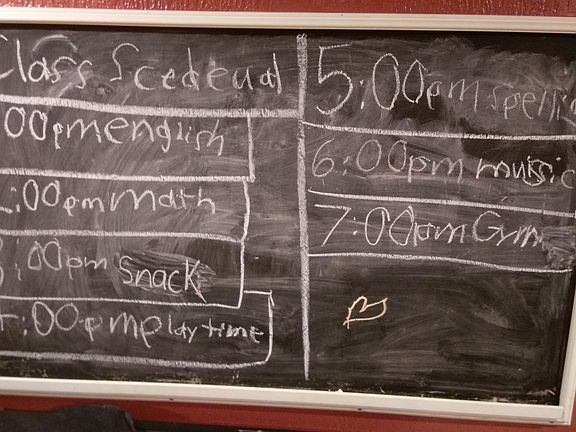 Class Scedeual
:00pm english
2:00pm math
3:00pm snack
4:00pm play time
5:00pm spelling
6:00pm muisic
7:00pm Gym